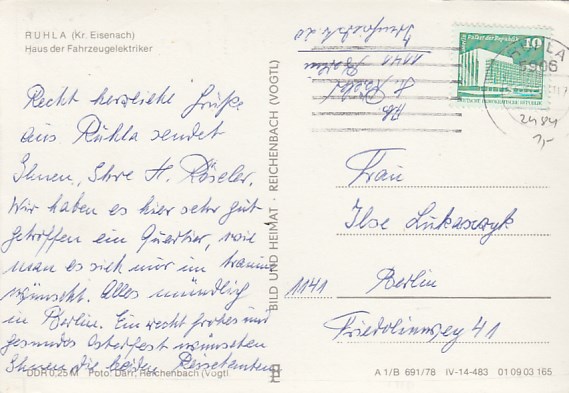 RUHLA (Kr. Eisenach)
Haus der Fahrzeugelektriker
Recht herzliche Grüße
aus Ruhla sendet
Ihnen, Ihre H. Röseler.
Wir haben es hier sehr gut
getroffen ein Quartier, wie
man es sich nur im Traum
wünscht. Alles mündlich
in Berlin. Ein recht frohes und
gesundes Osterfest wünschen
Ihnen die beiden Reisetanten
DDR 0,25 M Foto: Darr, Reichenbach (Vogtl
BILD UND HEIMAT · REICHENBACH (VOGTL)
Ab
H. Röseler
1141 Berlin
Palast der Republik
10
DEUTSCHE DEMOKRATISCHE REPUBLIK
RUHLA
5906
2484
1,-
Frau
Ilse Lukaszyk
1141 Berlin
Friedolinweg 41
A 1/B 691/78 IV-14-483 01 09 03 165